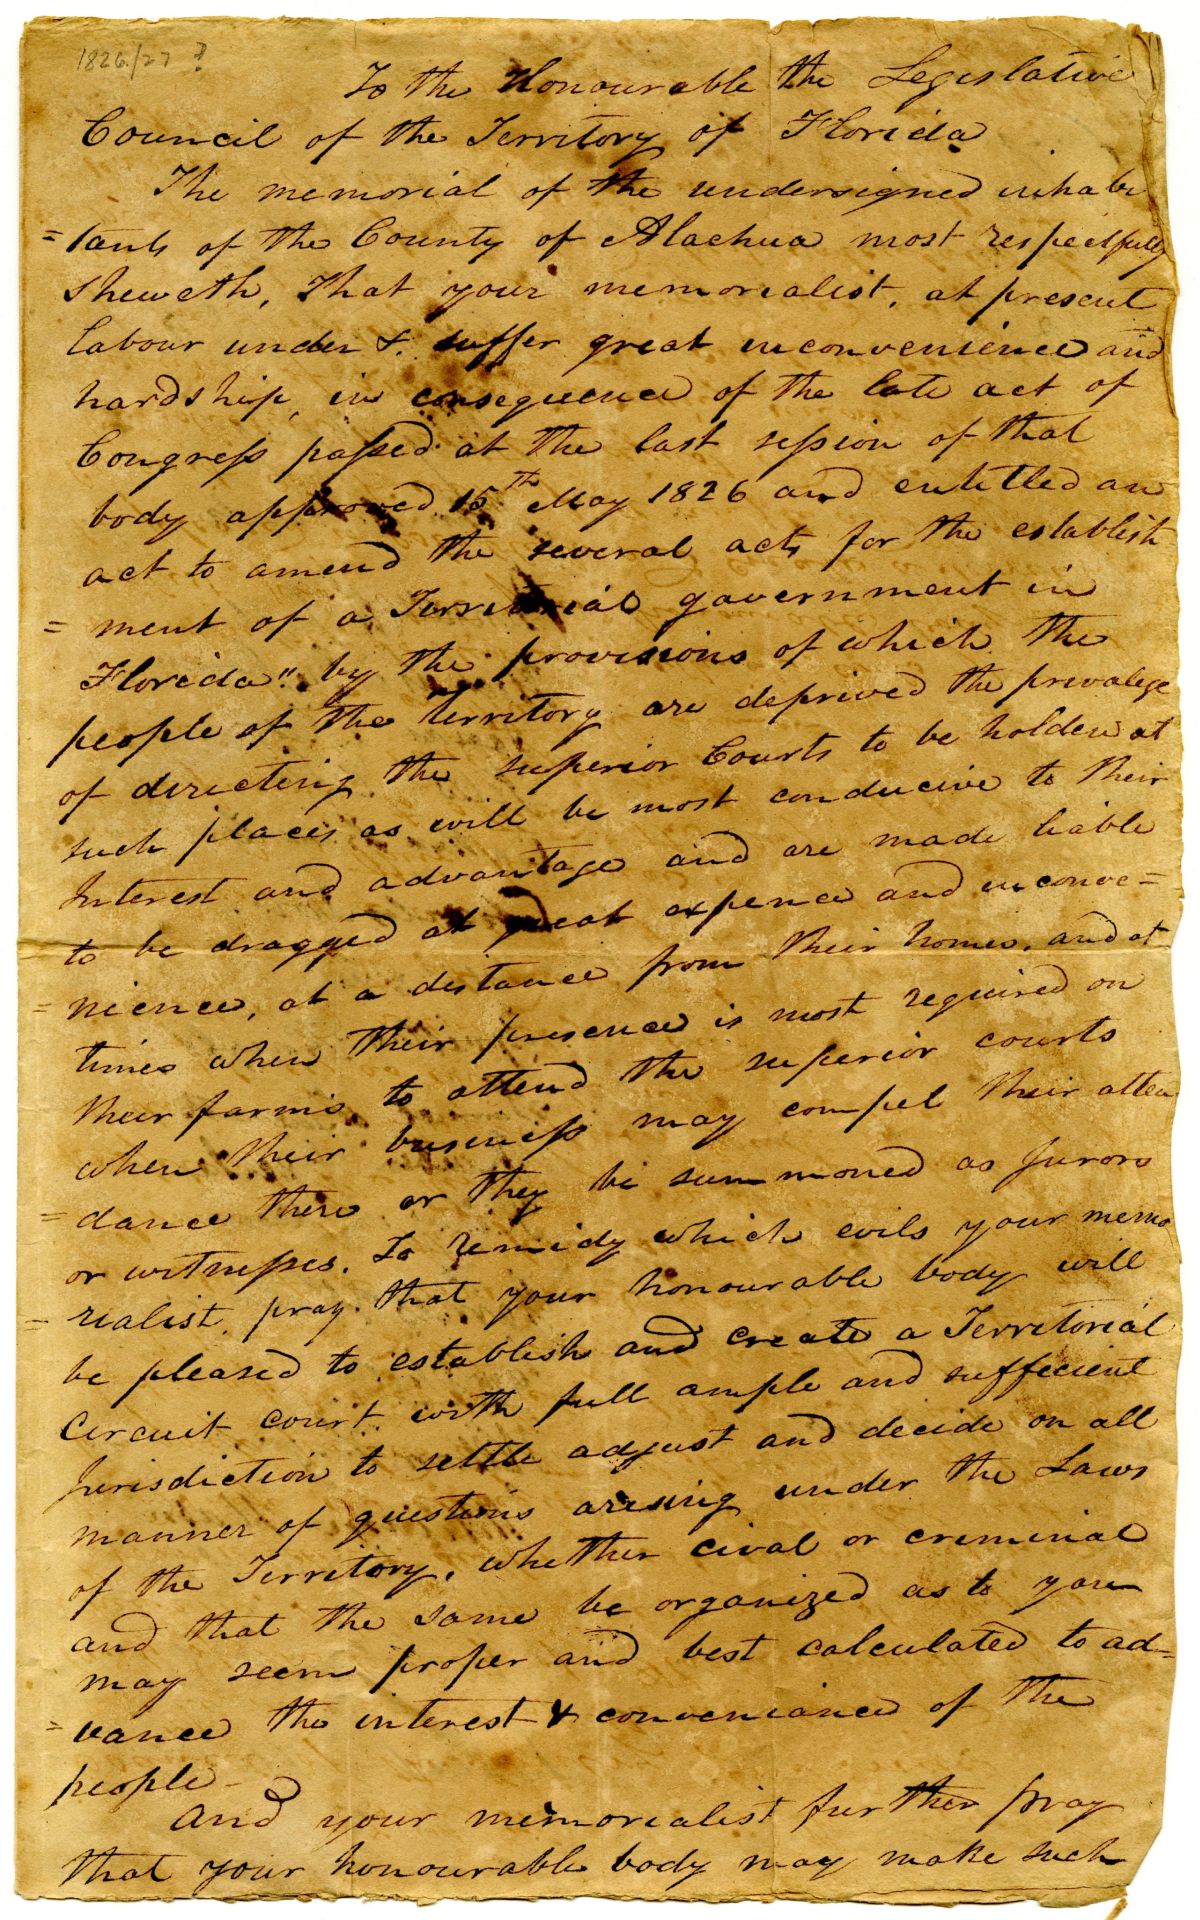 1826/27 ?
To the Honourable the Legislative
Council of the Territory of Florida
The memorial of the undersigned inhabi
= tants of the County of Alachua most respectfully
Sheweth, That your memorialist, at present
labour under & suffer great inconvenience and
hardship, in consequence of the late act of
Congress passed at the last session of that
body approved 15th May 1826 and entitled an
act to amend the several acts for the establish
= ment of a Territorial government in
Florida" by the provisions of which the
people of the Territory are deprived the privalege
of directing the superior Courts to be holden at
such places as will be most conducive to their
Interest and advantage and are made liable
to be dragged at great expence and inconve=
= nience, at a distance from their homes, and at
times when their presence is most required on
their farms, to attend the superior courts
when their business may compel their atten
= dance there or they be summoned as Jurors
or witnesses. To remidy which evils your memo
= rialist, pray. that your honourable body will
be pleased to establish and create a Territorial
Circuit court with full ample and sufficient
Jurisdiction to settle adjust and decide on all
manner of questions arising under the Laws
of the Territory, whether cival or criminal
and that the same be organized as to you
may seem proper and best calculated to ad=
= vance the interest & conveniance of the
people—
And your memorialist further pray
that your honourable body may make such